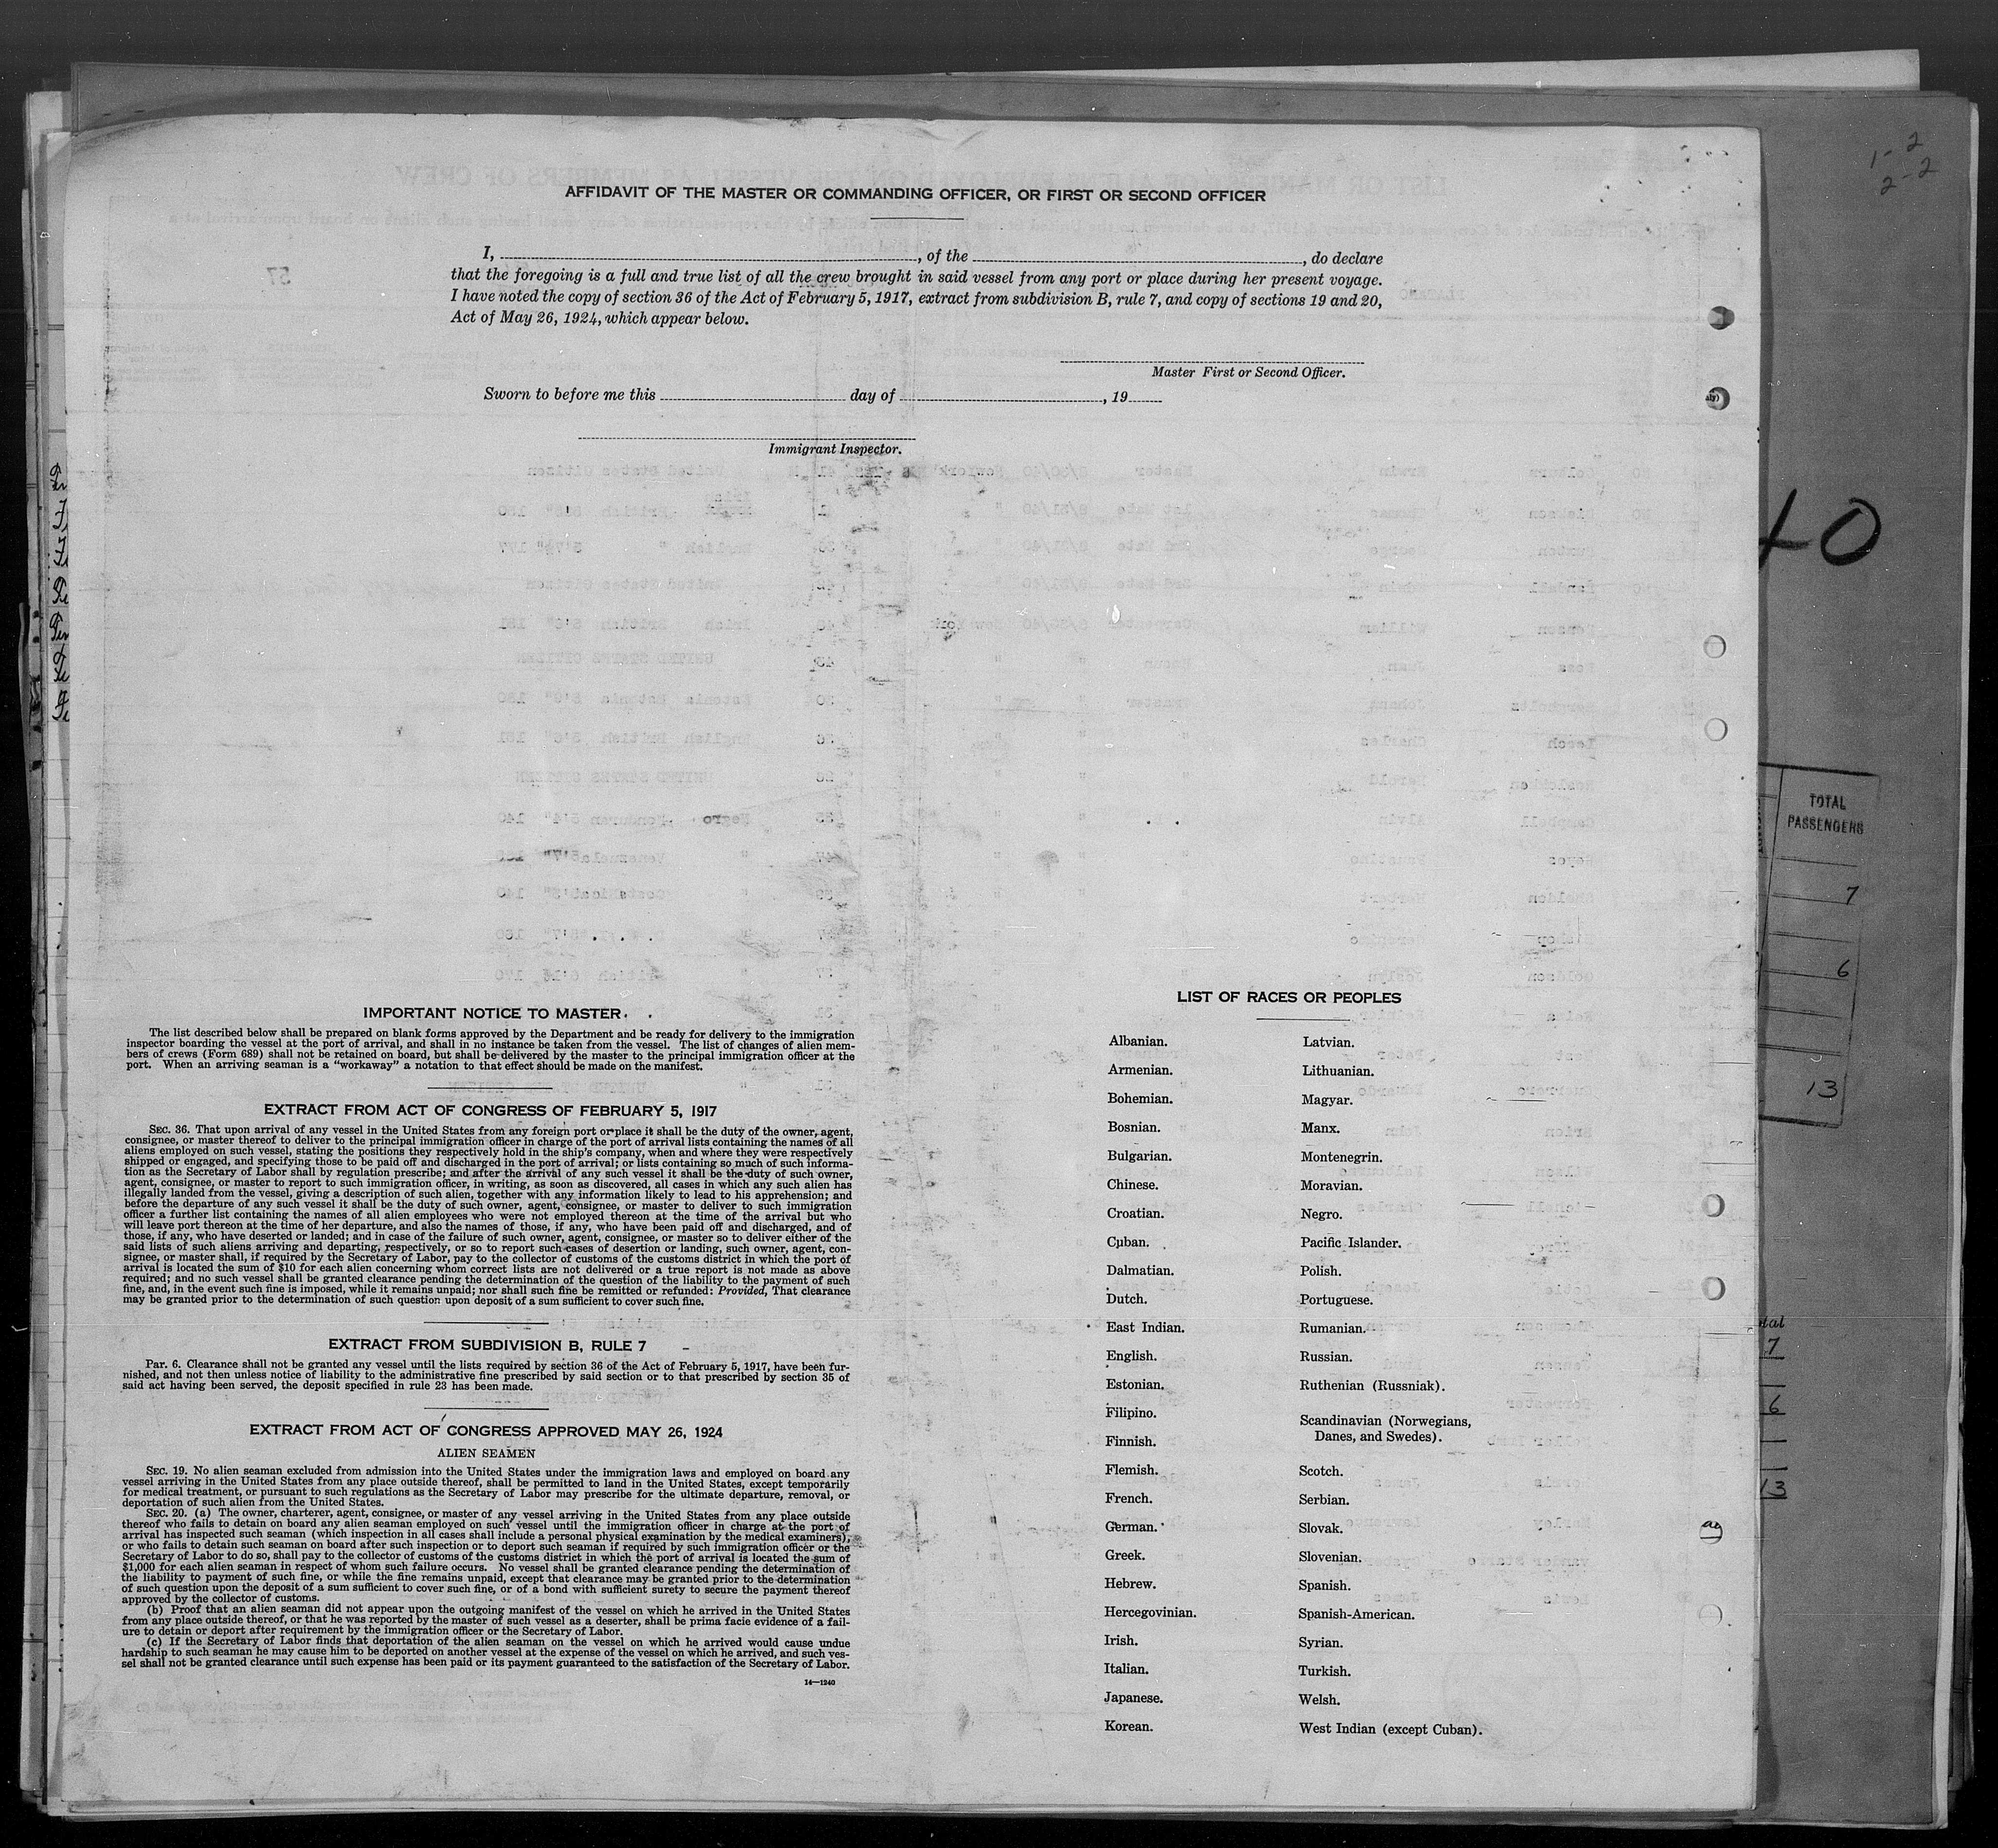 AFFIDAVIT OF THE MASTER OR COMMANDING OFFICER, OR FIRST OR SECOND OFFICER
I, , of the , do declare
that the foregoing is a full and true list of all the crew brought in said vessel from any port or place during her present voyage.
I have noted the copy of section 36 of the Act of February 5, 1917, extract from subdivision B, rule 7, and copy of sections 19 and 20,
Act of May 26, 1924, which appear below.
Master First or Second Officer.
Sworn to before me this day of , 19
Immigrant Inspector.
IMPORTANT NOTICE TO MASTER.
The list described below shall be prepared on blank forms approved by the Department and be ready for delivery to the immigration
inspector boarding the vessel at the port of arrival, and shall in no instance be taken from the vessel. The list of changes of alien mem-
bers of crews (Form 689) shall not be retained on board, but shall be delivered by the master to the principal immigration officer at the
port. When an arriving seaman is a "workaway" a notation to that effect should be made on the manifest.
EXTRACT FROM ACT OF CONGRESS OF FEBRUARY 5, 1917
SEC. 36. That upon arrival of any vessel in the United States from any foreign port or place it shall be the duty of the owner, agent,
consignee, or master thereof to deliver to the principal immigration officer in charge of the port of arrival lists containing the names of all
aliens employed on such vessel, stating the positions they respectively hold in the ship's company, when and where they were respectively
shipped or engaged, and specifying those to be paid off and discharged in the port of arrival; or lists containing so much of such informa-
tion as the Secretary of Labor shall by regulation prescribe; and after the arrival of any such vessel it shall be the duty of such owner,
agent, consignee, or master to report to such immigration officer, in writing, as soon as discovered, all cases in which any such alien has
illegally landed from the vessel, giving a description of such alien, together with any information likely to lead to his apprehension; and
before the departure of any such vessel it shall be the duty of such owner, agent, consignee, or master to deliver to such immigration
officer a further list containing the names of all alien employees who were not employed thereon at the time of the arrival but who
will leave port thereon at the time of her departure, and also the names of those, if any, who have been paid off and discharged, and of
those, if any, who have deserted or landed; and in case of the failure of such owner, agent, consignee, or master so to deliver either of the
said lists of such aliens arriving and departing, respectively, or so to report such cases of desertion or landing, such owner, agent, con-
signee, or master shall, if required by the Secretary of Labor, pay to the collector of customs of the customs district in which the port of
arrival is located the sum of $10 for each alien concerning whom correct lists are not delivered or a true report is not made as above
required; and no such vessel shall be granted clearance pending the determination of the question of the liability to the payment of such
fine, and, in the event such fine is imposed, while it remains unpaid; nor shall such fine be remitted or refunded: Provided, That clearance
may be granted prior to the determination of such question upon deposit of a sum sufficient to cover such fine.
EXTRACT FROM SUBDIVISION B, RULE 7
PAR. 6. Clearance shall not be granted any vessel until the lists required by section 36 of the Act of February 5, 1917, have been fur-
nished, and not then unless notice of liability to the administrative fine prescribed by said section or to that prescribed by section 35 of
said act having been served, the deposit specified in rule 23 has been made.
EXTRACT FROM ACT OF CONGRESS APPROVED MAY 26, 1924
ALIEN SEAMEN
SEC. 19. No alien seaman excluded from admission into the United States under the immigration laws and employed on board any
vessel arriving in the United States from any place outside thereof, shall be permitted to land in the United States, except temporarily
for medical treatment, or pursuant to such regulations as the Secretary of Labor may prescribe for the ultimate departure, removal, or
deportation of such alien from the United States.
SEC. 20. (a) The owner, charterer, agent, consignee, or master of any vessel arriving in the United States from any place outside
thereof who fails to detain on board any alien seaman employed on such vessel until the immigration officer in charge at the port of
arrival has inspected such seaman (which inspection in all cases shall include a personal physical examination by the medical examiners),
or who fails to detain such seaman on board after such inspection or to deport such seaman if required by such immigration officer or the
Secretary of Labor to do so, shall pay to the collector of customs of the customs district in which the port of arrival is located the sum of
$1,000 for each alien seaman in respect of whom such failure occurs. No vessel shall be granted clearance pending the determination of
the liability to payment of such fine, or while the fine remains unpaid, except that clearance may be granted prior to the determination
of such question upon the deposit of a sum sufficient to cover such fine, or of a bond with sufficient surety to secure the payment thereof
approved by the collector of customs.
(b) Proof that an alien seaman did not appear upon the outgoing manifest of the vessel on which he arrived in the United States
from any place outside thereof, or that he was reported by the master of such vessel as a deserter, shall be prima facie evidence of a fail-
ure to detain or deport after requirement by the immigration officer or the Secretary of Labor.
(c) If the Secretary of Labor finds that deportation of the alien seaman on the vessel on which he arrived would cause undue
hardship to such seaman he may cause him to be deported on another vessel at the expense of the vessel on which he arrived, and such ves-
sel shall not be granted clearance until such expense has been paid or its payment guaranteed to the satisfaction of the Secretary of Labor.
14—1240
LIST OF RACES OR PEOPLES
Albanian.
Armenian.
Bohemian.
Bosnian.
Bulgarian.
Chinese.
Croatian.
Cuban.
Dalmatian.
Dutch.
East Indian.
English.
Estonian.
Filipino.
Finnish.
Flemish.
French.
German.
Greek.
Hebrew.
Hercegovinian.
Irish.
Italian.
Japanese.
Korean.
Latvian.
Lithuanian.
Magyar.
Manx.
Montenegrin.
Moravian.
Negro.
Pacific Islander.
Polish.
Portuguese.
Rumanian.
Russian.
Ruthenian (Russniak).
Scandinavian (Norwegians,
Danes, and Swedes).
Scotch.
Serbian.
Slovak.
Slovenian.
Spanish.
Spanish-American.
Syrian.
Turkish.
Welsh.
West Indian (except Cuban).
1-2
2-2
40
TOTAL
PASSENGERS
7
6
13
7
6
13